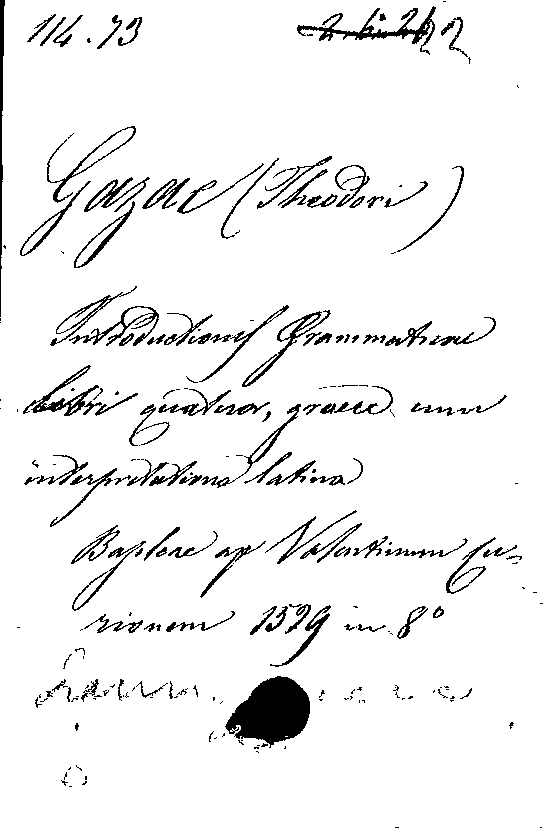 114.73
Gazae (Theodori)
Introductionis Grammaticae
libri quatuor, graece cum
interpretatione latina
Basileae ap Valentinum Cu-
rionem 1529 in 8°